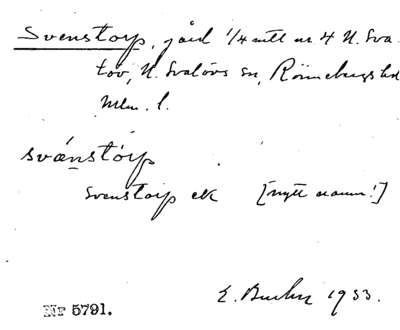 Svenstorp, gård 1/4 mtl nr 4 N. Sva-
löv, N. Svalövs sn, Rönnebergs hd
Mlm. l.
svänstórp
Svenstorp ek [nytt namn!]
E. 1933.
Nr 5791.